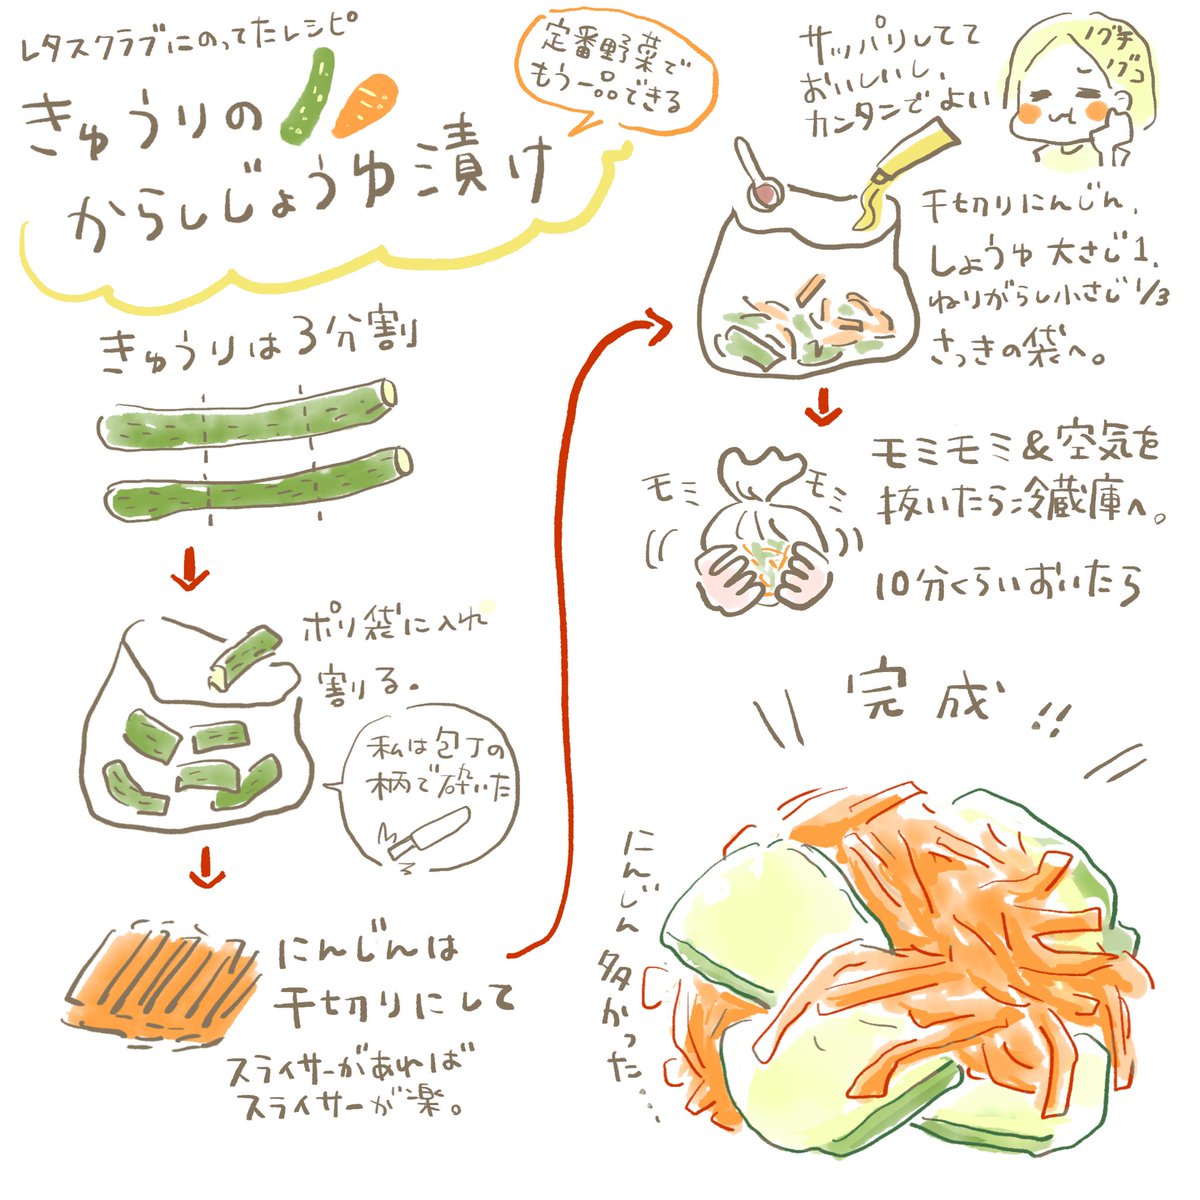 レタスクラブにのってたレシピ
きゅうりの
からしじょうゆ漬け
定番野菜で
もう一品できる
きゅうりは3分割
ポリ袋に入れ
割る.
私は包丁の
柄で砕いた
にんじんは
千切りにして
スライサーがあれば
スライサーが楽。
サッパリしてて
おいしいし、
カンタンでよい
ノグチ
ノブコ
千切りにんじん、
しょうゆ 大さじ1、
ねりがらし小さじ1/3
さっきの袋へ。
モミ
モミ
モミモミ&空気を
抜いたら冷蔵庫へ。
10分くらいおいたら
完成!!
にんじん多かった...